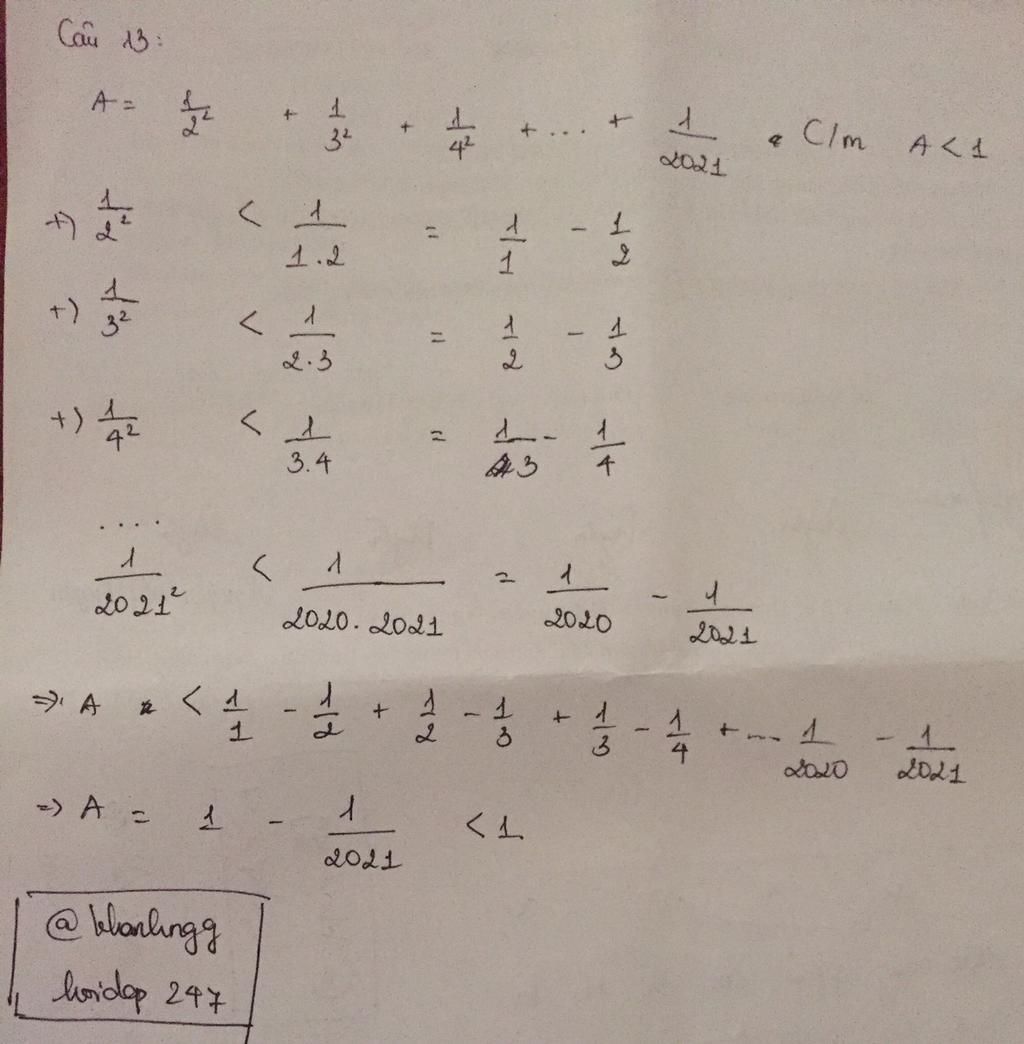 Câu 13:
A = 1/2² + 1/3² + 1/4² + ... + 1/2021 C/m A < 1
+) 1/2² < 1/1.2 = 1/1 - 1/2
+) 1/3² < 1/2.3 = 1/2 - 1/3
+) 1/4² < 1/3.4 = 1/3 - 1/4
....
1/2021² < 1/2020.2021 = 1/2020 - 1/2021
=> A < 1/1 - 1/2 + 1/2 - 1/3 + 1/3 - 1/4 + ... 1/2020 - 1/2021
=> A = 1 - 1/2021 < 1
hoidap 247